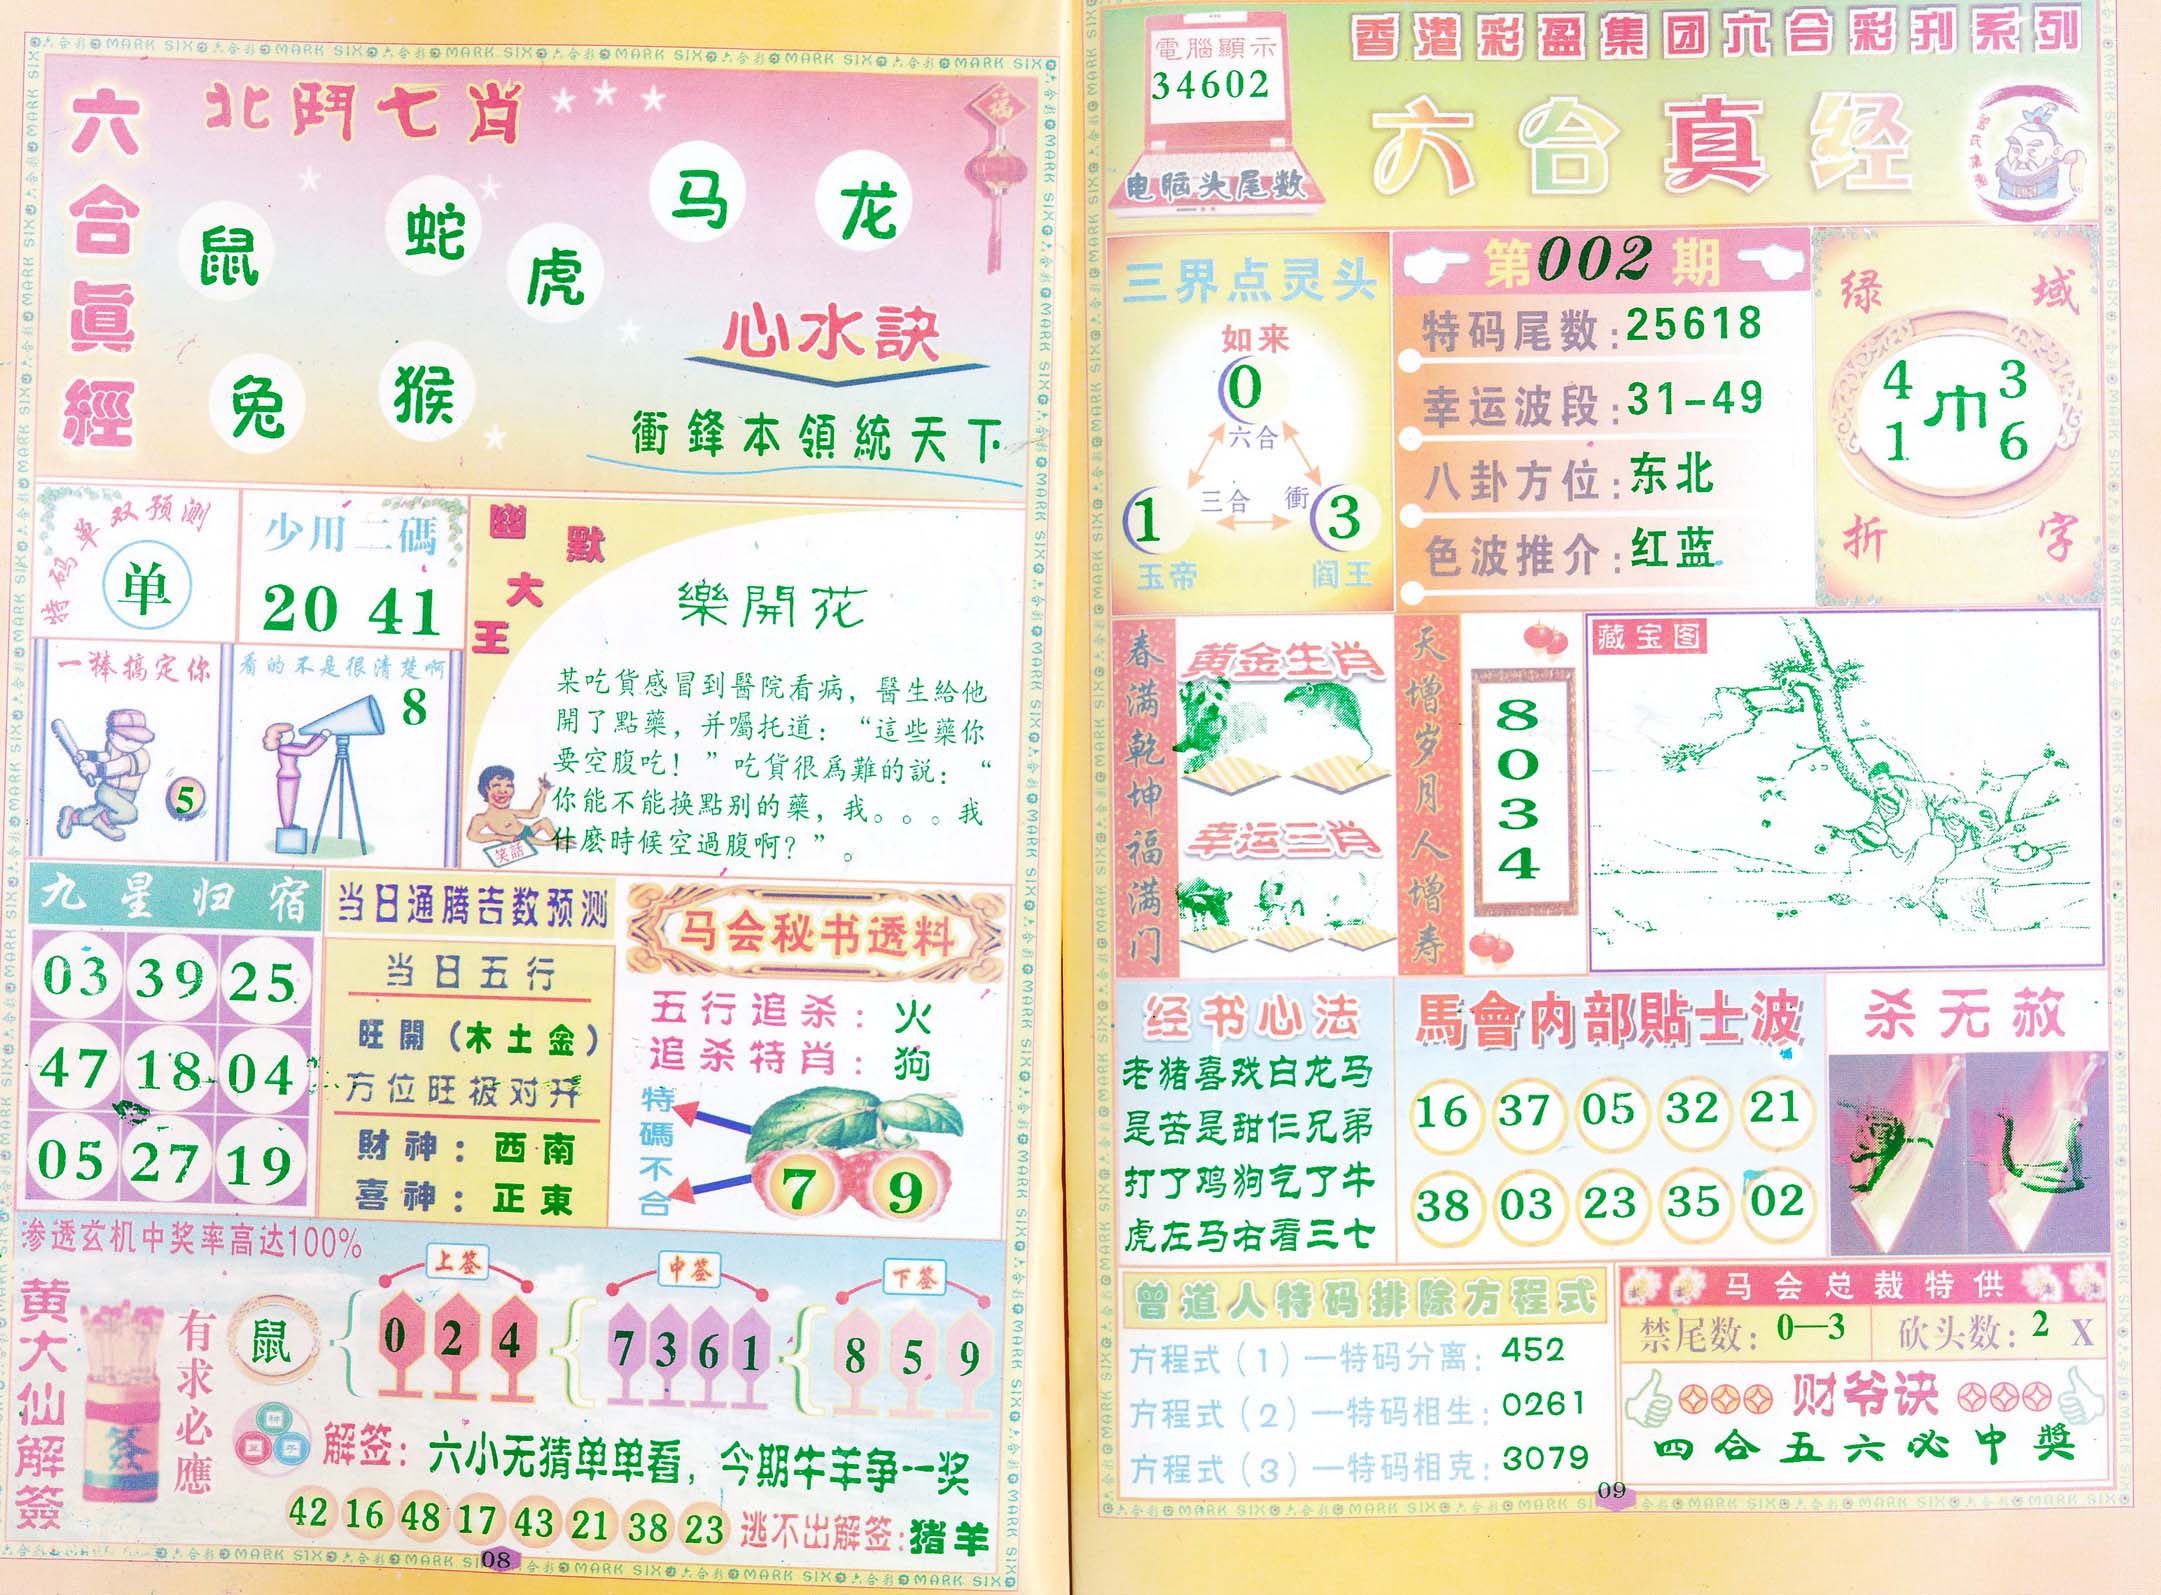 六合眞經
北鬥七肖
鼠
蛇
虎
马
龙
兔
猴
福
心水訣
衝鋒本領統天下
特码单双预测
单
少用二碼
20 41
一棒搞定你
5
看的不是很清楚啊
8
幽默大王
樂開花
某吃貨感冒到醫院看病，醫生給他
開了點藥，并囑托道：“這些藥你
要空腹吃！”吃貨很爲難的說：“
你能不能换點别的藥，我。。。我
什麽時候空過腹啊？”。
笑話
九星归宿
03 39 25
47 18 04
05 27 19
当日通腾吉数预测
当日五行
旺開（木土金）
方位旺极对开
財神：西南
喜神：正東
马会秘书透料
五行追杀：火
追杀特肖：狗
特碼不合
7 9
渗透玄机中奖率高达100%
黄大仙解簽
签
有求必應
鼠
上签
0 2 4
中签
7 3 6 1
下签
8 5 9
解签：六小无猜单单看，今期牛羊争一奖
42 16 48 17 43 21 38 23 逃不出解签:猪羊
08
電腦顯示
34602
电脑头尾数
香港彩盈集团六合彩刊系列
六合真经
三界点灵头
如来
0
六合
三合
衝
1
3
玉帝
阎王
第002期
特码尾数:25618
幸运波段:31-49
八卦方位:东北
色波推介:红蓝
绿域
4 3
1 6
折字
春满乾坤福满门
黄金生肖
幸运三肖
天增岁月人增寿
8034
藏宝图
经书心法
老猪喜戏白龙马
是苦是甜仨兄弟
打了鸡狗气了牛
虎左马右看三七
馬會内部貼士波
16 37 05 32 21
38 03 23 35 02
杀无赦
曾道人特码排除方程式
方程式（1）—特码分离:452
方程式（2）—特码相生:0261
方程式（3）—特码相克:3079
马会总裁特供
禁尾数：0—3
砍头数：2 X
财爷诀
四合五六必中獎
09